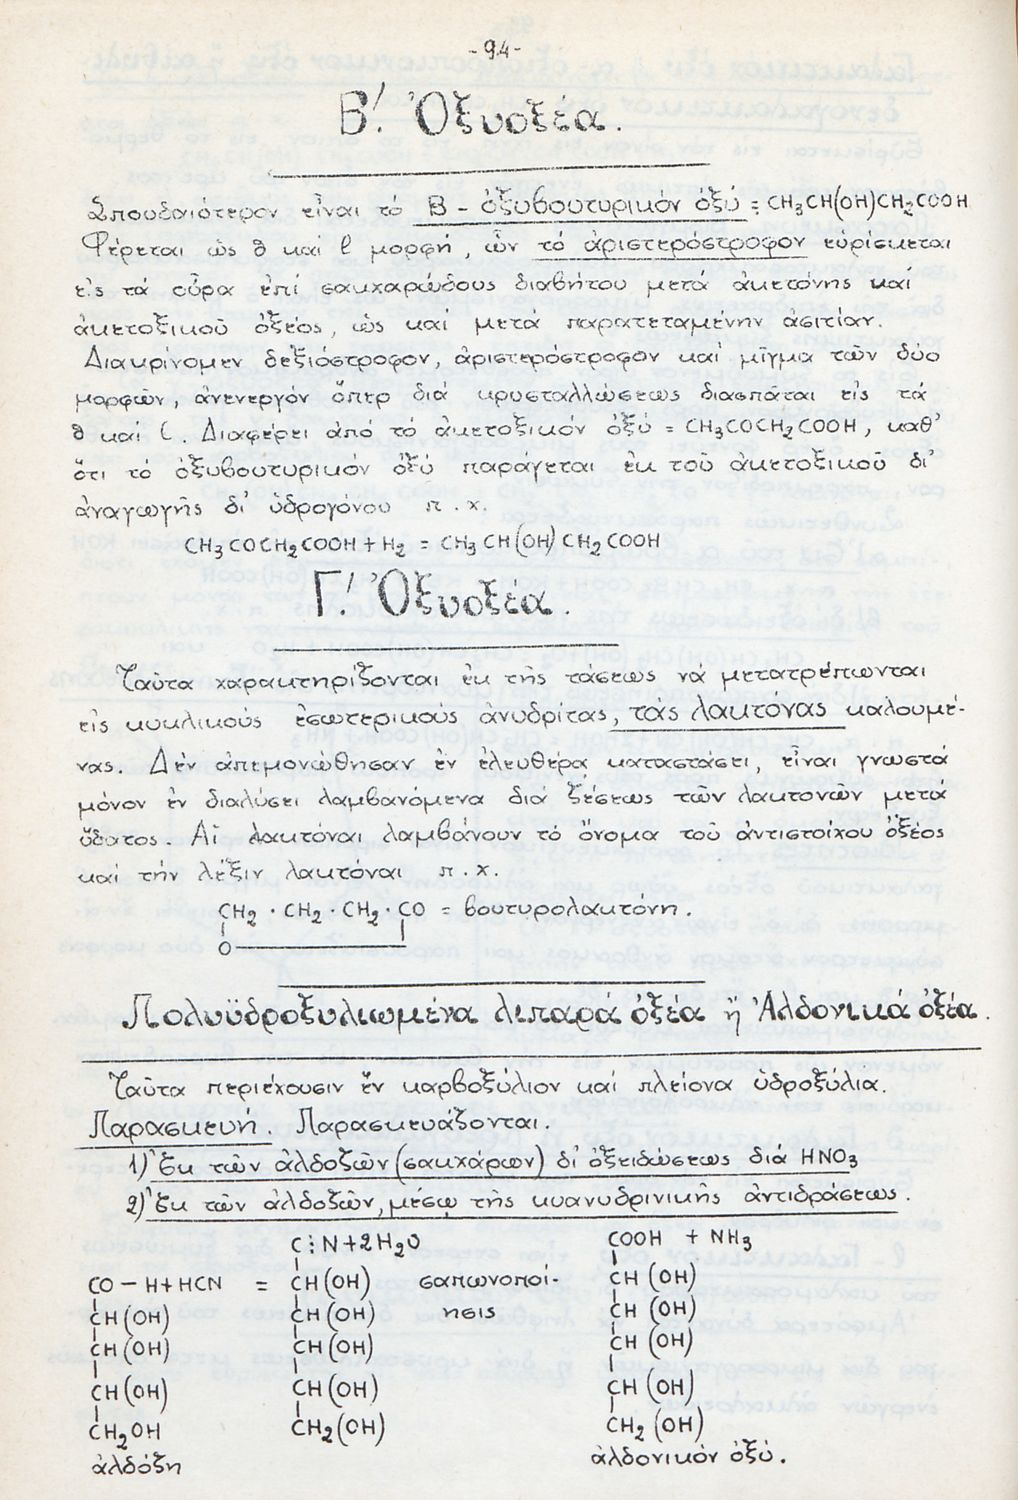 -94-
Β.' Ὀξυοξέα.
Σπουδαιότερον εἶναι τό Β - ὀξυβουτυρικόν ὀξύ = CH₃CH(OH)CH₂COOH
Φέρεται ὡς δ καί ℓ μορφή, ὧν τό ἀριστερόστροφον εὑρίσκεται
εἰς τά οὖρα ἐπί σακχαρώδους διαβήτου μετά ἀκετόνης καί
ἀκετοξικοῦ ὀξέος, ὡς καί μετά παρατεταμένην ἀσιτίαν.
Διακρίνομεν δεξιόστροφον, ἀριστερόστροφον καί μῖγμα τῶν δύο
μορφῶν, ἀνενεργόν ὅπερ διά κρυσταλλώσεως διασπᾶται εἰς τά
δ καί ℓ. Διαφέρει ἀπό τό ἀκετοξικόν ὀξύ = CH₃COCH₂COOH, καθ'
ὅτι τό ὀξυβουτυρικόν ὀξύ παράγεται ἐκ τοῦ ἀκετοξικοῦ δι'
ἀναγωγῆς δι' ὑδρογόνου π.χ.
CH₃COCH₂COOH + H₂ = CH₃CH(OH)CH₂COOH
Γ.' Ὀξυοξέα.
Ταῦτα χαρακτηρίζονται ἐκ τῆς τάσεως νά μετατρέπωνται
εἰς κυκλικούς ἐσωτερικούς ἀνυδρίτας, τάς λακτόνας καλουμέ-
νας. Δέν ἀπεμονώθησαν ἐν ἐλευθέρᾳ καταστάσει, εἶναι γνωστά
μόνον ἐν διαλύσει λαμβανόμενα διά ζέσεως τῶν λακτονῶν μετά
ὕδατος. Αἱ λακτόναι λαμβάνουν τό ὄνομα τοῦ ἀντιστοίχου ὀξέος
καί τήν λέξιν λακτόναι π.χ.
CH₂ · CH₂ · CH₂ · CO = βουτυρολακτόνη.
O
Πολυϋδροξυλιωμένα λιπαρά ὀξέα ἤ Ἀλδονικά ὀξέα.
Ταῦτα περιέχουσιν ἕν καρβοξύλιον καί πλείονα ὑδροξύλια.
Παρασκευή. Παρασκευάζονται.
1) Ἐκ τῶν ἀλδοζῶν (σακχάρων) δι' ὀξειδώσεως διά HNO₃
2) Ἐκ τῶν ἀλδοζῶν, μέσῳ τῆς κυανυδρινικῆς ἀντιδράσεως.
C⋮N+2H₂O COOH + NH₃
CO – H+HCN = CH(OH) σαπωνοποί- CH(OH)
CH(OH) CH(OH) ησις CH(OH)
CH(OH) CH(OH) CH(OH)
CH(OH) CH(OH) CH(OH)
CH₂OH CH₂(OH) CH₂(OH)
ἀλδόζη ἀλδονικόν ὀξύ.